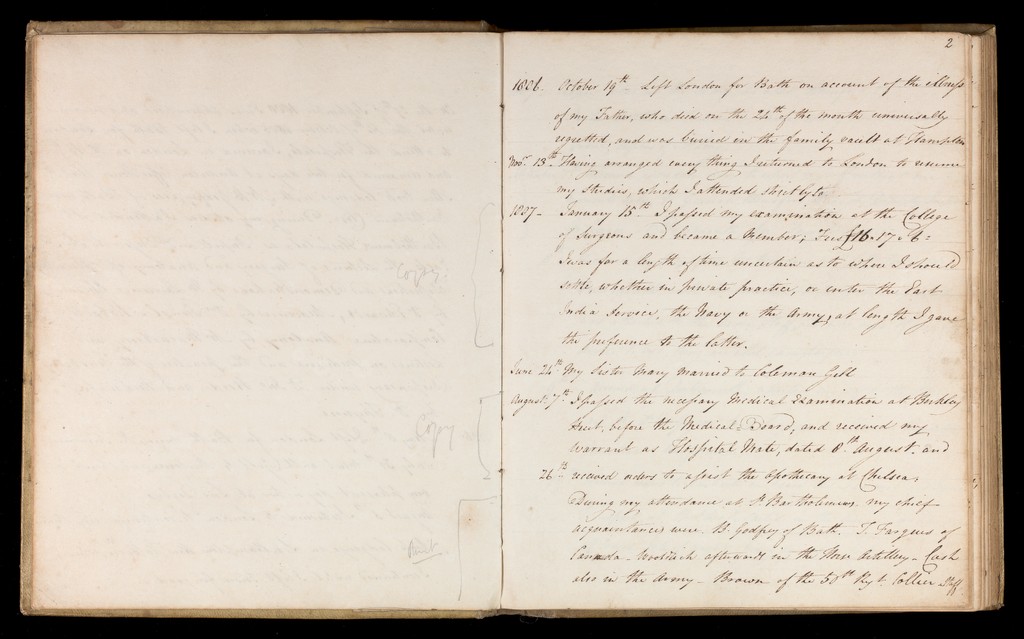 2
1806. October 19th Left London for Bath on account of the illness
of my Father, who died on the 24th of the month universally
regretted, and was buried in the family vault at
Novr. 13th Having arranged every thing I returned to London to resume
my studies, which I attended strictly to.
1807- January 15th I passed my examination at the College
of Surgeons and became a Member; Fees £16.17.6=
I was for a length of time uncertain as to where I should
settle, whether in private practice, or enter the East
India Service, the Navy or the Army, at length I gave
the preference to the latter.
June 24th My Sister Mary married to Coleman Gill
August 7th I passed the necessary Medical Examination at Berkley
Street, before the Medical Board, and received my
Warrant as Hospital Mate, dated 8th August. and
26th received orders to assist the Apothecary at Chelsea;
During my attendance at St. Bartholemews my chief
acquaintances were B. Godfrey of Bath. T. Fargues of
Canada - Woolrich afterwards in the Horse Artillery - Cash
also in the Army - Brown of the 50th Regt. Collier Staff
Copy.
Copy